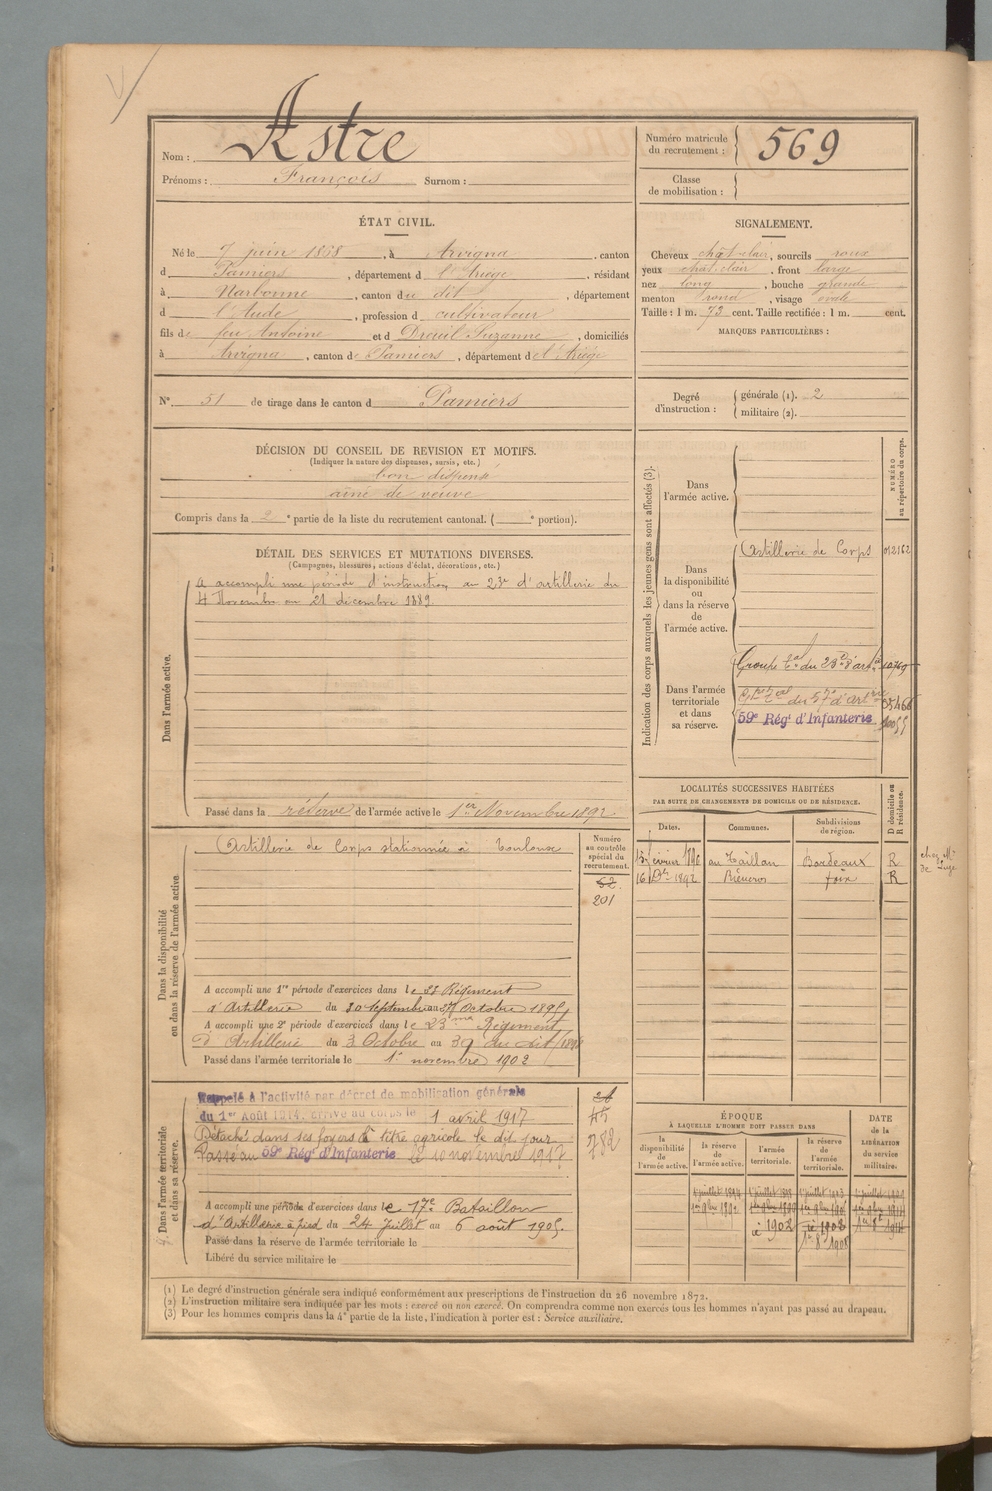 Nom : Astre
Prénoms : François Surnom :
Numéro matricule du recrutement : 569
Classe de mobilisation :
ÉTAT CIVIL.
Né le 7 juin 1868, à Arvigna, canton
d Pamiers, département d l'Ariège, résidant
à Narbonne, canton du dit, département
d l'Aude, profession d cultivateur
fils de feu Antoine et d Dreuil Suzanne, domiciliés
à Arvigna, canton de Pamiers, département de l'Ariège
SIGNALEMENT.
Cheveux chât-clair, sourcils roux
yeux chât. clair, front large
nez long, bouche grande
menton rond, visage ovale
Taille : 1 m. 73 cent. Taille rectifiée : 1 m. cent.
MARQUES PARTICULIÈRES :
N° 51 de tirage dans le canton d Pamiers
Degré d'instruction :
générale (1). 2
militaire (2).
DÉCISION DU CONSEIL DE REVISION ET MOTIFS.
(Indiquer la nature des dispenses, sursis, etc.)
bon dispensé
aîné de veuve
Compris dans la 2e partie de la liste du recrutement cantonal. ( e portion).
DÉTAIL DES SERVICES ET MUTATIONS DIVERSES.
(Campagnes, blessures, actions d'éclat, décorations, etc.)
Dans l'armée active.
A accompli une période d'instruction au 23e d'artillerie du
4 Novembre au 21 décembre 1889.
Passé dans la réserve de l'armée active le 1er Novembre 1892
Indication des corps auxquels les jeunes gens sont affectés (3).
NUMÉRO au répertoire du corps.
Dans l'armée active.
Dans la disponibilité ou dans la réserve de l'armée active.
Artillerie de Corps 012162
Dans l'armée territoriale et dans sa réserve.
Groupe du 23e d'art 10769
du 57e d'artrie
59e Régt d'Infanterie
LOCALITÉS SUCCESSIVES HABITÉES
PAR SUITE DE CHANGEMENTS DE DOMICILE OU DE RÉSIDENCE.
Dates. Communes. Subdivisions de région. D domicile ou R résidence.
au Taillan Bordeaux R
16 1892 Rieucros foix R
Dans la disponibilité ou dans la réserve de l'armée active
Artillerie de Corps stationnée à Toulouse
Numéro au contrôle spécial du recrutement.
62.
201
A accompli une 1re période d'exercices dans le 23 Régiment
d'Artillerie du 30 septembre au 27 Octobre 1895,
A accompli une 2e période d'exercices dans le 23me Régiment
d'Artillerie du 3 Octobre au 30 du dit
Passé dans l'armée territoriale le 1er novembre 1902
Dans l'armée territoriale et dans sa réserve.
Rappelé à l'activité par décret de mobilisation générale
du 1er Août 1914. arrivé au corps le 1 avril 1917
Détaché dans ses foyers à titre agricole le dit jour
Passé au 59e Régt d'Infanterie le 10 novembre 1917
45
782
A accompli une période d'exercices dans le 17me Bataillon
d'Artillerie à pied du 24 Juillet au 6 août 1905.
Passé dans la réserve de l'armée territoriale le
Libéré du service militaire le
ÉPOQUE
À LAQUELLE L'HOMME DOIT PASSER DANS
la disponibilité de l'armée active.
la réserve de l'armée active.
l'armée territoriale.
la réserve de l'armée territoriale.
DATE de la LIBÉRATION du service militaire.
1902
(1) Le degré d'instruction générale sera indiqué conformément aux prescriptions de l'instruction du 26 novembre 1872.
(2) L'instruction militaire sera indiquée par les mots : exercé ou non exercé. On comprendra comme non exercés tous les hommes n'ayant pas passé au drapeau.
(3) Pour les hommes compris dans la 4e partie de la liste, l'indication à porter est : Service auxiliaire.